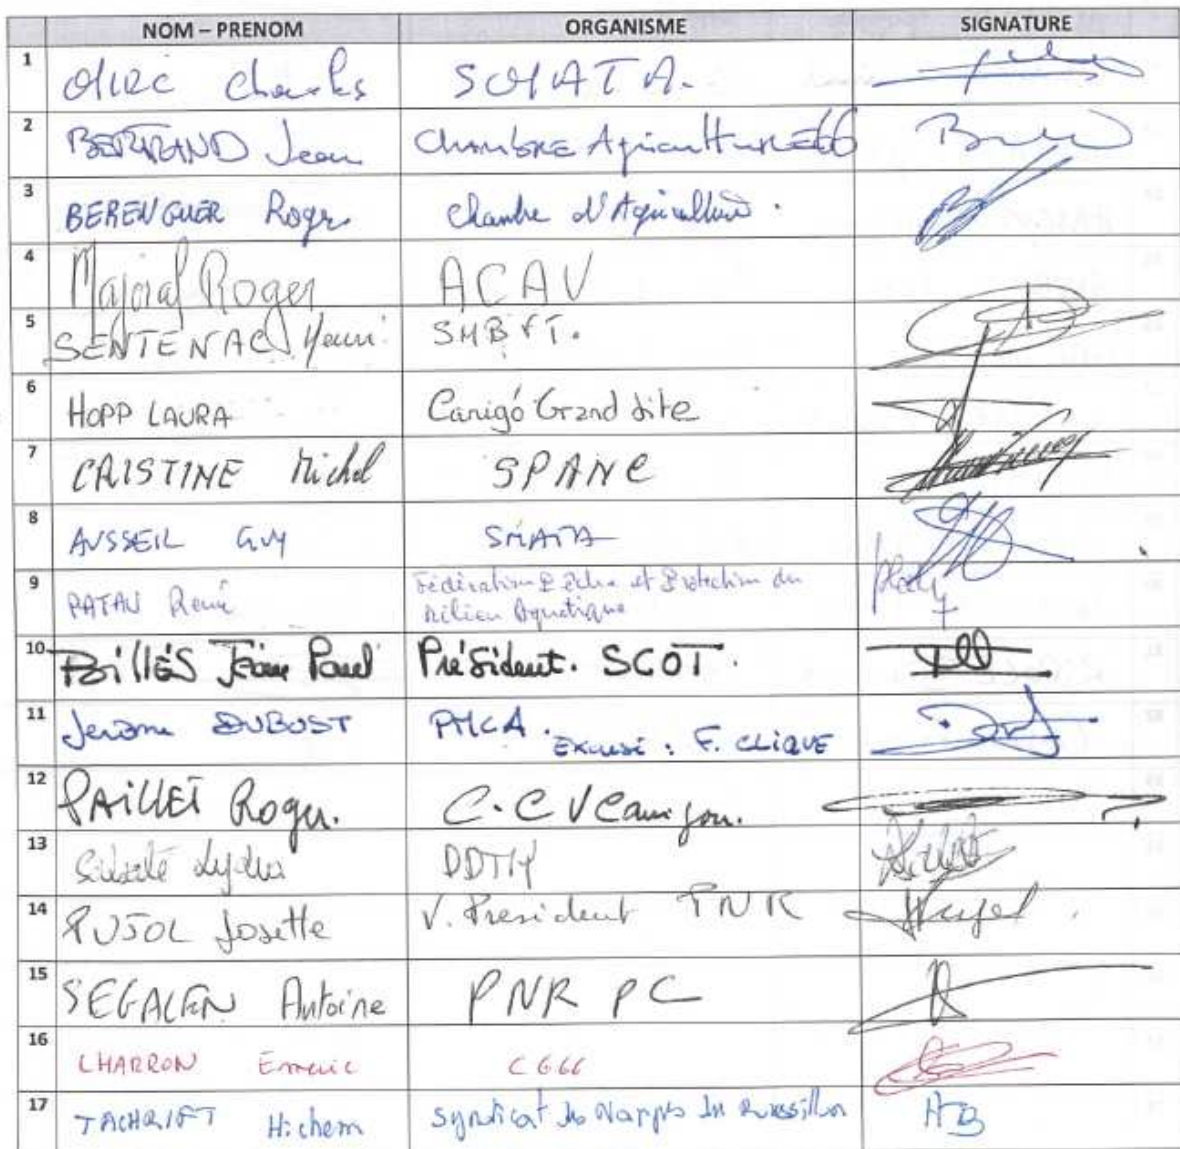 NOM – PRENOM ORGANISME SIGNATURE
1 Charles
2 BERTRAND Jean Chambre Agriculture 66
3 BERENGUER Roger Chambre d'Agriculture.
4 Majoral Roger ACAV
5 SENTENAC Henri SMBVT.
6 HOPP LAURA Canigó Grand Site
7 CRISTINE Michel SPANC
8 AUSSEIL Guy
9 PATAU René Fédération Pêche et Protection du
Milieu Aquatique
10 BILLÈS Jean Paul Président. SCOT.
11 Jerome DUBOST PMCA. Excusé : F. CLIQUE
12 PAILLET Roger. C.C V Canigou.
13 Lydia DDTM
14 PUJOL Josette V. President PNR
15 SEGALEN Antoine PNR PC
16 CHARRON Emeric CG66
17 TACHRIFT Hichem Syndicat des Nappes du Roussillon